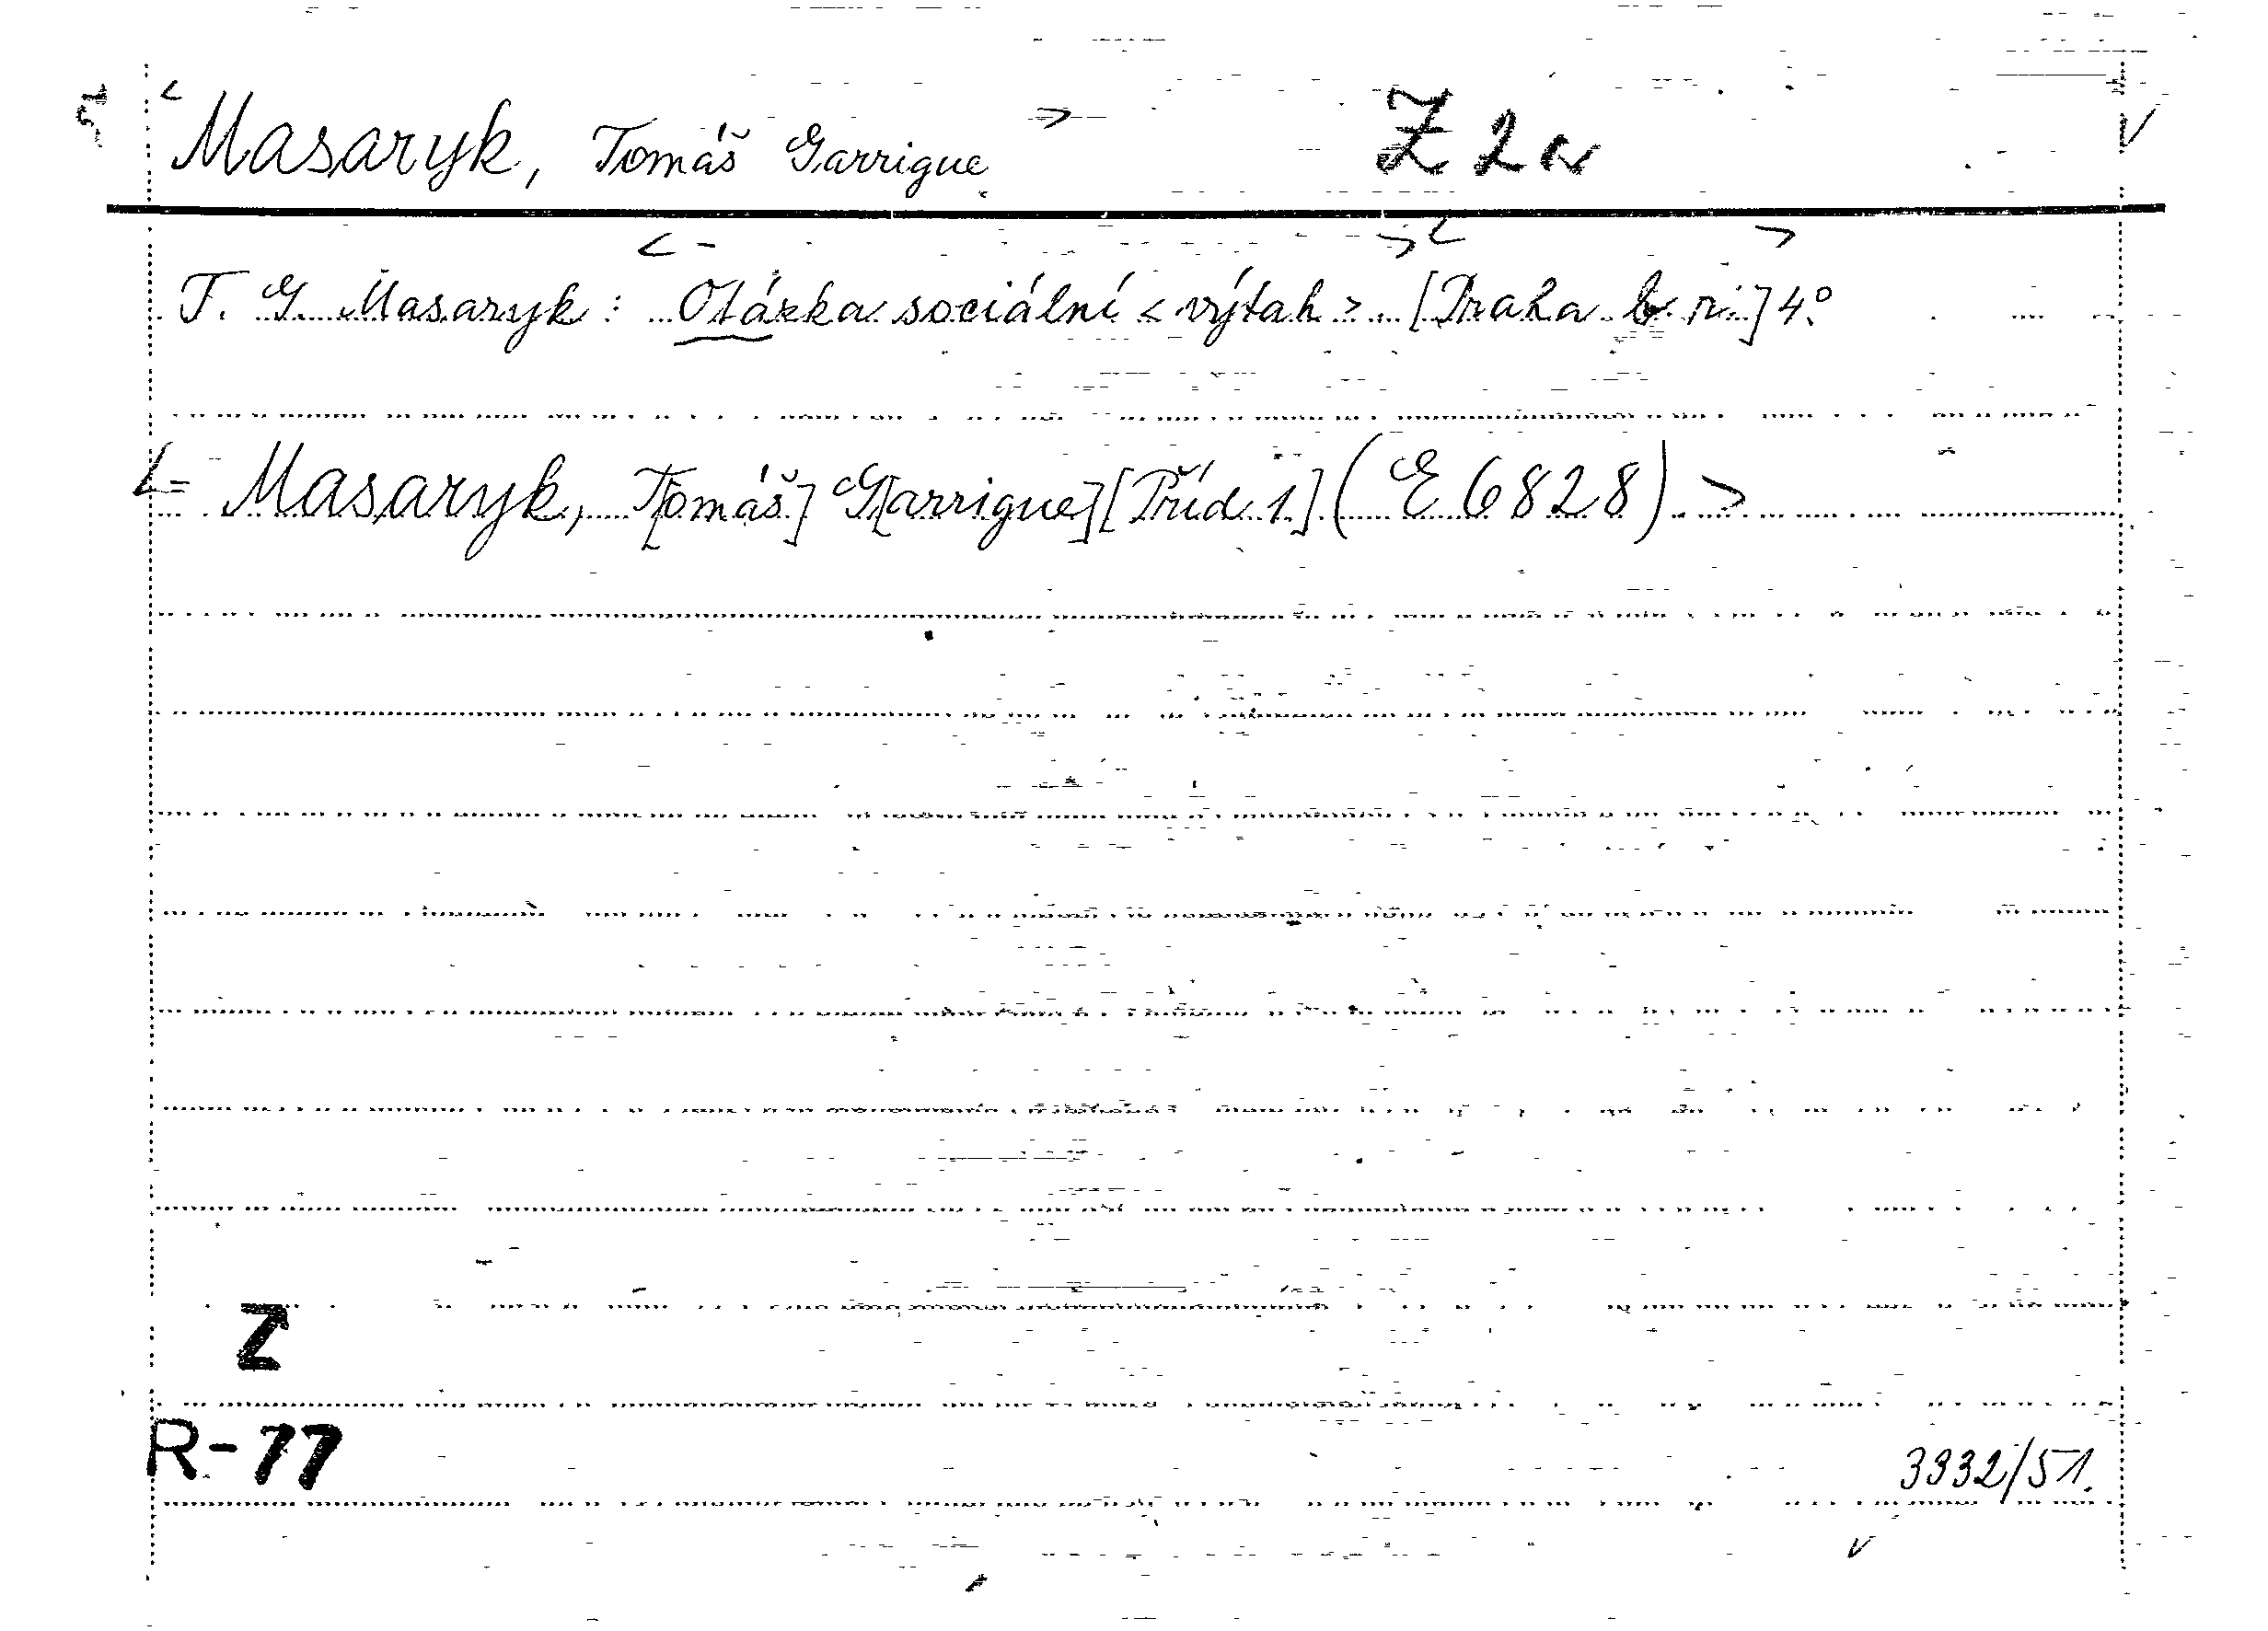 < Masaryk, Tomáš Garrigue > Z 2a
T. G. Masaryk: Otázka sociální < výtah > [Praha b. r.] 4°
<= Masaryk, T[omáš] G[arrigue] [Příd. 1] (E 6828) >
Z
R-77
3332/51.